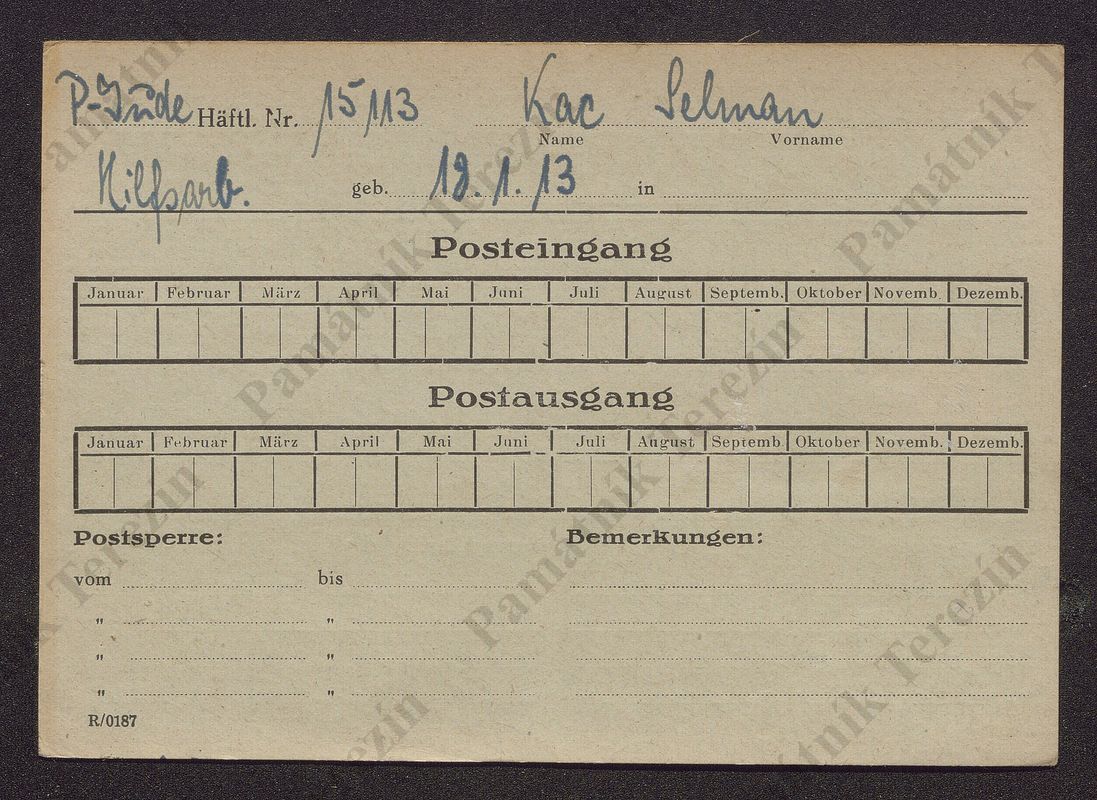 P-Jude Häftl. Nr. 15113 Kac Selman
Name Vorname
Hilfsarb. geb. 18.1.13 in
Posteingang
Januar Februar März April Mai Juni Juli August Septemb. Oktober Novemb. Dezemb.
Postausgang
Januar Februar März April Mai Juni Juli August Septemb. Oktober Novemb. Dezemb.
Postsperre: Bemerkungen:
vom bis
" "
" "
" "
R/0187
Památník Terezín
Památník Terezín
Památník Terezín
Památník Terezín